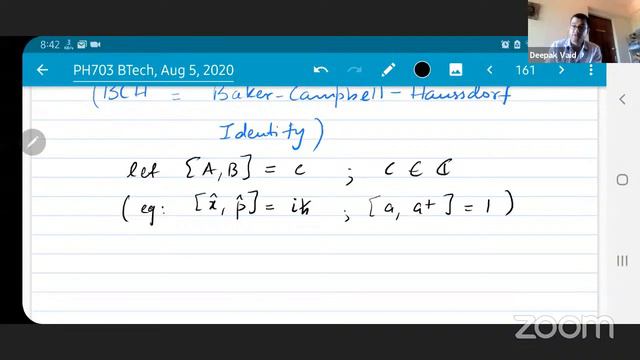 8:42
Deepak Vaid
PH703 BTech, Aug 5, 2020
161
(BCH = Baker-Campbell-Haussdorf
Identity)
let [A, B] = c ; c ∈ ℂ
(eg: [x̂, p̂] = iħ ; [a, a†] = 1)
zoom